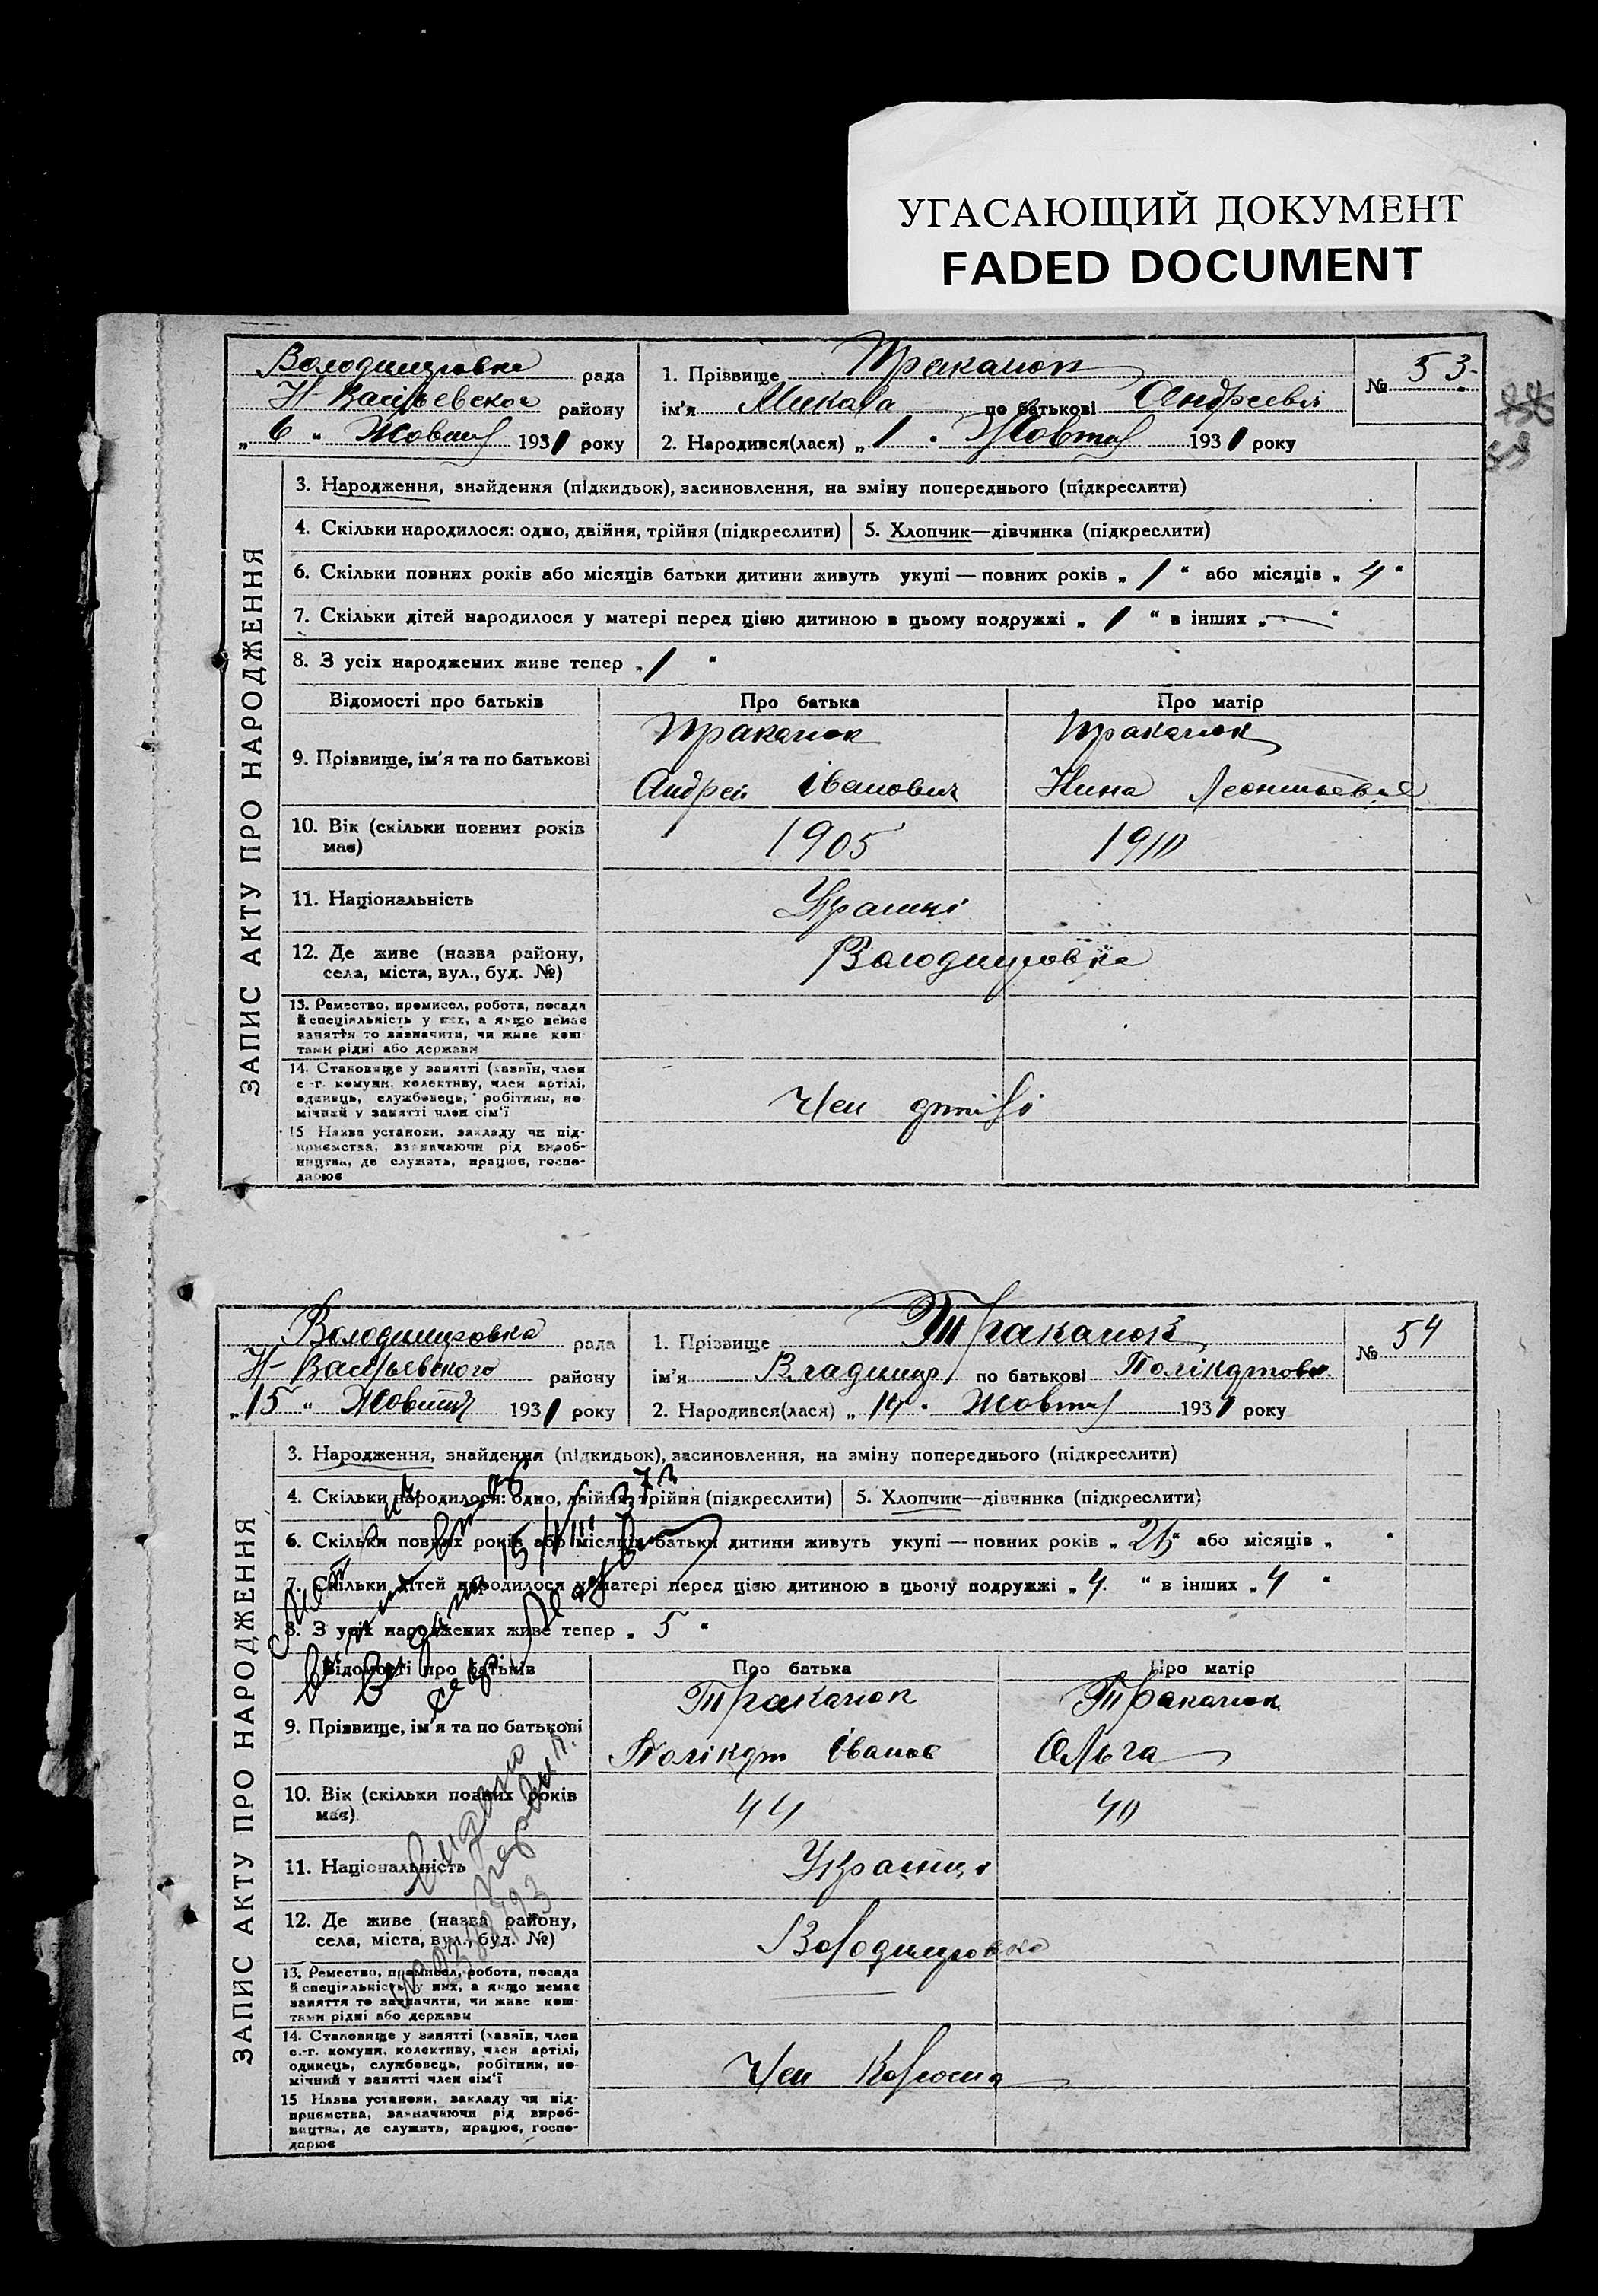 УГАСАЮЩИЙ ДОКУМЕНТ
FADED DOCUMENT
Володимировка рада
Н-Васильевского району
„ 6 “ Жовтня 1931 року
1. Прізвище Траканюк
ім'я Микола по батькові Андреевич
2. Народився(лася) „ 1 “ Жовтня 1931 року
№ 53
ЗАПИС АКТУ ПРО НАРОДЖЕННЯ
3. Народження, знайдення (підкидьок), засиновлення, на зміну попереднього (підкреслити)
4. Скільки народилося: одно, двійня, трійня (підкреслити) 5. Хлопчик—дівчинка (підкреслити)
6. Скільки повних років або місяців батьки дитини живуть укупі — повних років „ 1 “ або місяців „ 4 “
7. Скільки дітей народилося у матері перед цією дитиною в цьому подружжі „ 1 “ в інших „ — “
8. З усіх народжених живе тепер „ 1 “
Відомості про батьків Про батька Про матір
9. Прізвище, ім'я та по батькові
Траканюк Траканюк
Андрей Іванович Нина Леонтьевна
10. Вік (скільки повних років має) 1905 1910
11. Національність
12. Де живе (назва району,
села, міста, вул., буд. №) Володимировка
13. Ремество, промисел, робота, посада
й спеціяльність у них, а якщо немає
заняття то зазначити, чи живе кош-
тами рідні або держави
14. Становище у занятті (хазяїн, член
с.-г. комуни, колективу, член артілі,
одинець, службовець, робітник, по-
мічний у занятті член сім'ї Член артілі
15 Назва установи, закладу чи під-
приємства, зазначаючи рід вироб-
ництва, де служить, працює, госпо-
дарює
Володимировка рада
Н-Васильевского району
„ 15 “ Жовтня 1931 року
1. Прізвище Траканюк
ім'я Владимир по батькові Полікарпов
2. Народився(лася) „ 14 “ Жовтня 1931 року
№ 54
ЗАПИС АКТУ ПРО НАРОДЖЕННЯ
3. Народження, знайдення (підкидьок), засиновлення, на зміну попереднього (підкреслити)
4. Скільки народилося: одно, двійня, трійня (підкреслити) 5. Хлопчик—дівчинка (підкреслити)
6. Скільки повних років або місяців батьки дитини живуть укупі — повних років „ “ або місяців „ “
7. Скільки дітей народилося у матері перед цією дитиною в цьому подружжі „ 4 “ в інших „ 4 “
8. З усіх народжених живе тепер „ 5 “
Відомості про батьків Про батька Про матір
9. Прізвище, ім'я та по батькові
Траканюк Траканюк
Іванов Ольга
10. Вік (скільки повних років має) 44 40
11. Національність Украінці
12. Де живе (назва району,
села, міста, вул., буд. №) Володимировка
13. Ремество, промисел, робота, посада
й спеціяльність у них, а якщо немає
заняття то зазначити, чи живе кош-
тами рідні або держави
14. Становище у занятті (хазяїн, член
с.-г. комуни, колективу, член артілі,
одинець, службовець, робітник, по-
мічний у занятті член сім'ї Член Колгоспа
15 Назва установи, закладу чи під-
приємства, зазначаючи рід вироб-
ництва, де служить, працює, госпо-
дарює